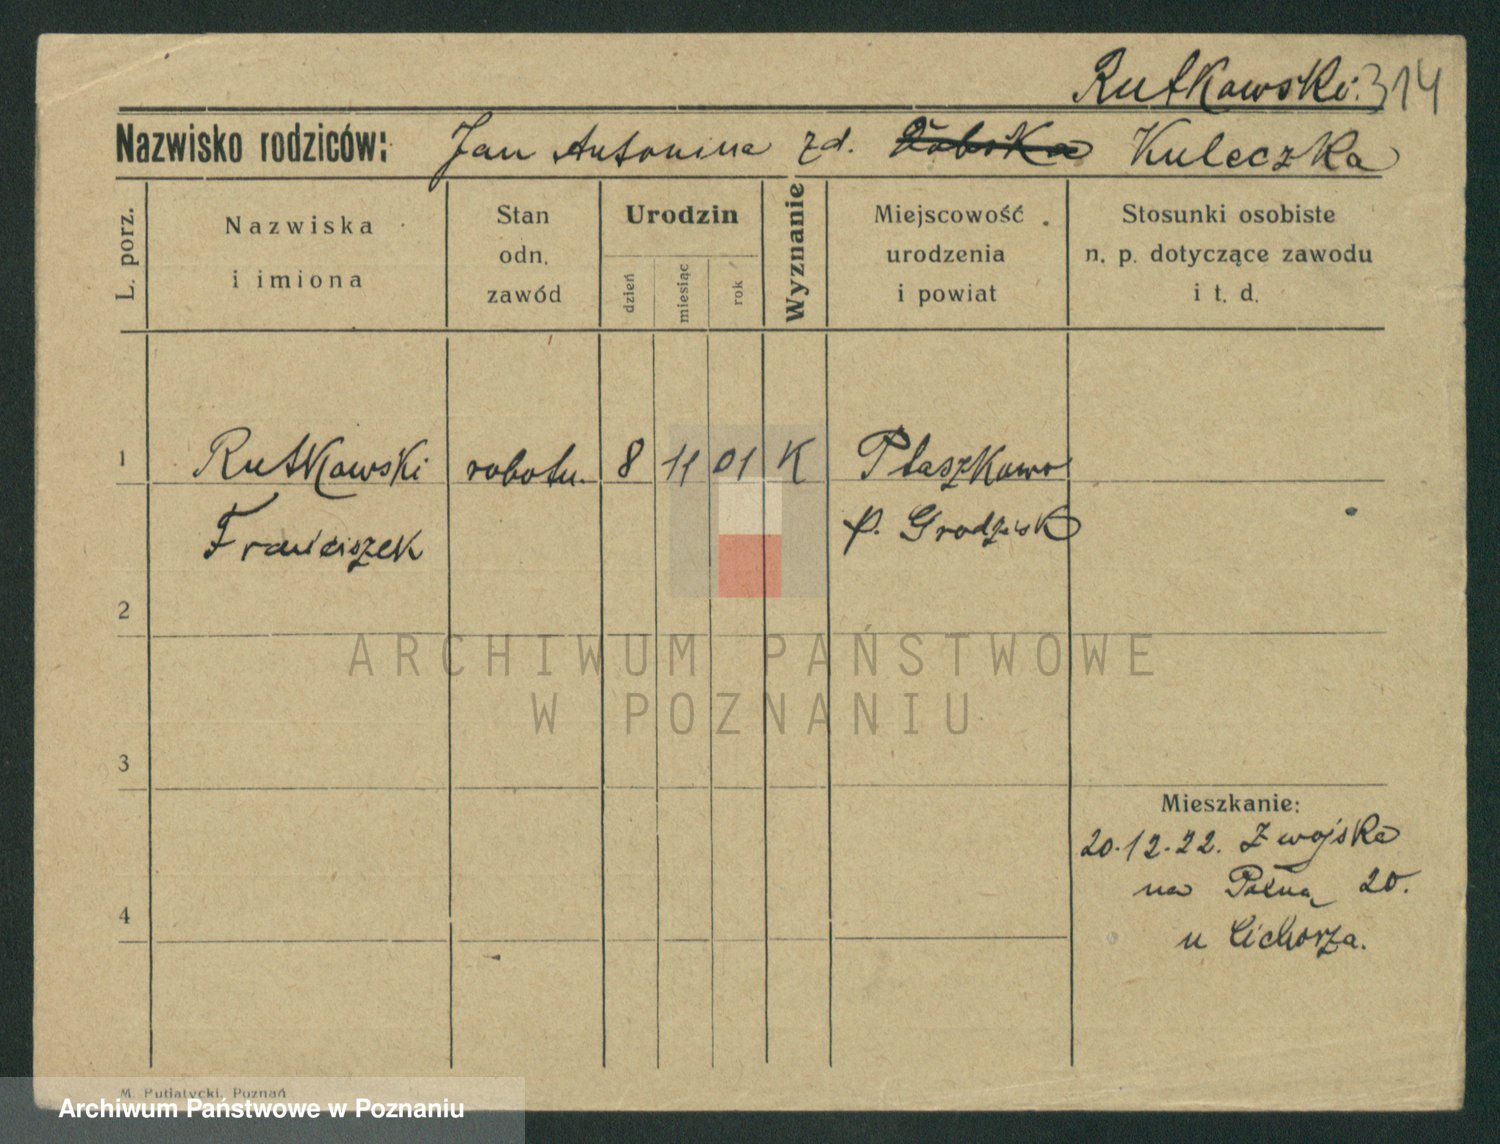 Rutkowski. 314
Nazwisko rodziców: Jan Antonina zd. Kuleczka
L. porz.
Nazwiska
i imiona
Stan
odn.
zawód
Urodzin
dzień
miesiąc
rok
Wyznanie
Miejscowość
urodzenia
i powiat
Stosunki osobiste
n. p. dotyczące zawodu
i t. d.
1 Rutkowski robotn. 8 11 01 K Ptaszkowo
Franciszek p. Grodzisk
2
ARCHIWUM PAŃSTWOWE
W POZNANIU
3
Mieszkanie:
20.12.22. Z wojska
na 20.
4
u Cichorza.
M. Putiatycki, Poznań
Archiwum Państwowe w Poznaniu